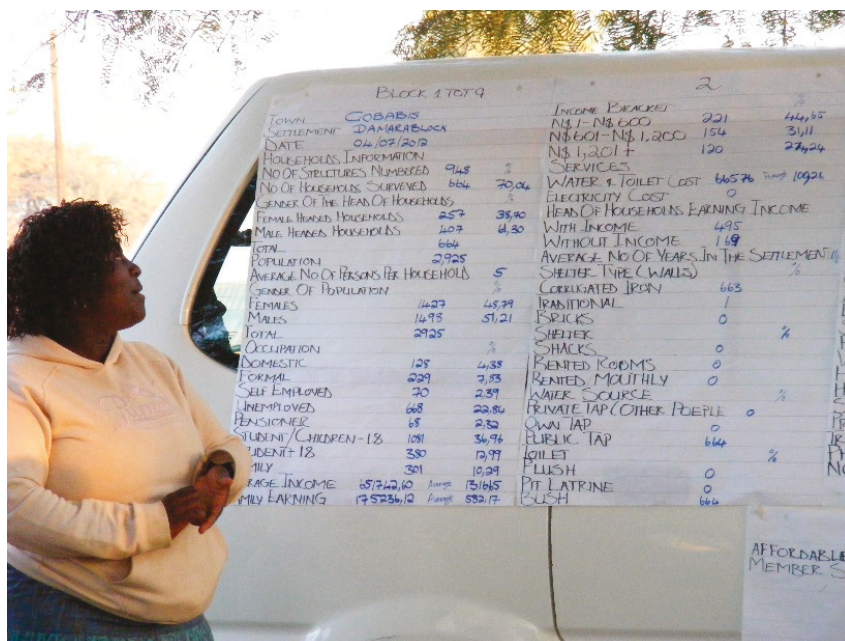 BLOCK 1 TOT 9
TOWN GOBABIS
SETTLEMENT DAMARABLOCK
DATE 04/07/2012
HOUSEHOLDS INFORMATION
NO OF STRUCTURES NUMBERED 948 %
NO OF HOUSEHOLDS SURVEYED 664 70,04
GENDER OF THE HEAD OF HOUSEHOLDS %
FEMALE HEADED HOUSEHOLDS 257 38,70
MALE HEADED HOUSEHOLDS 407 61,30
TOTAL 664
POPULATION 2,925
AVERAGE NO OF PERSONS PER HOUSEHOLD 5
GENDER OF POPULATION %
FEMALES 1427 48,79
MALES 1498 51,21
TOTAL 2925
OCCUPATION %
DOMESTIC 128 4,38
FORMAL 229 7,83
SELF EMPLOYED 70 2,39
UNEMPLOYED 668 22,84
PENSIONER 68 2,32
STUDENT/CHILDREN-18 1081 36,96
UDENT+18 380 12,99
MILY 301 10,29
RAGE INCOME 651742,60
MILY EARNING 175236,12 582,17
2
INCOME BRACKET %
N$1-N$600 221 44,65
N$601-N$1,200 154 31,11
N$1,201+ 120 24,24
SERVICES
WATER & TOILET COST 66576
ELECTRICITY COST 0
HEAD OF HOUSEHOLDS EARNING INCOME
WITH INCOME 495
WITHOUT INCOME 169
AVERAGE NO OF YEARS IN THE SETTLEMENT
SHELTER TYPE (WALLS) %
CORRUGATED IRON 663
TRADITIONAL 1
BRICKS 0
SHELTER %
SHACKS 0
RENTED ROOMS 0
RENTED MOUTHLY 0
WATER SOURCE %
PRIVATE TAP (OTHER POEPLE 0
OWN TAP 0
PUBLIC TAP 664
TOILET %
FLUSH 0
PIT LATRINE 0
BUSH 664
AFFORDABLE
MEMBER S